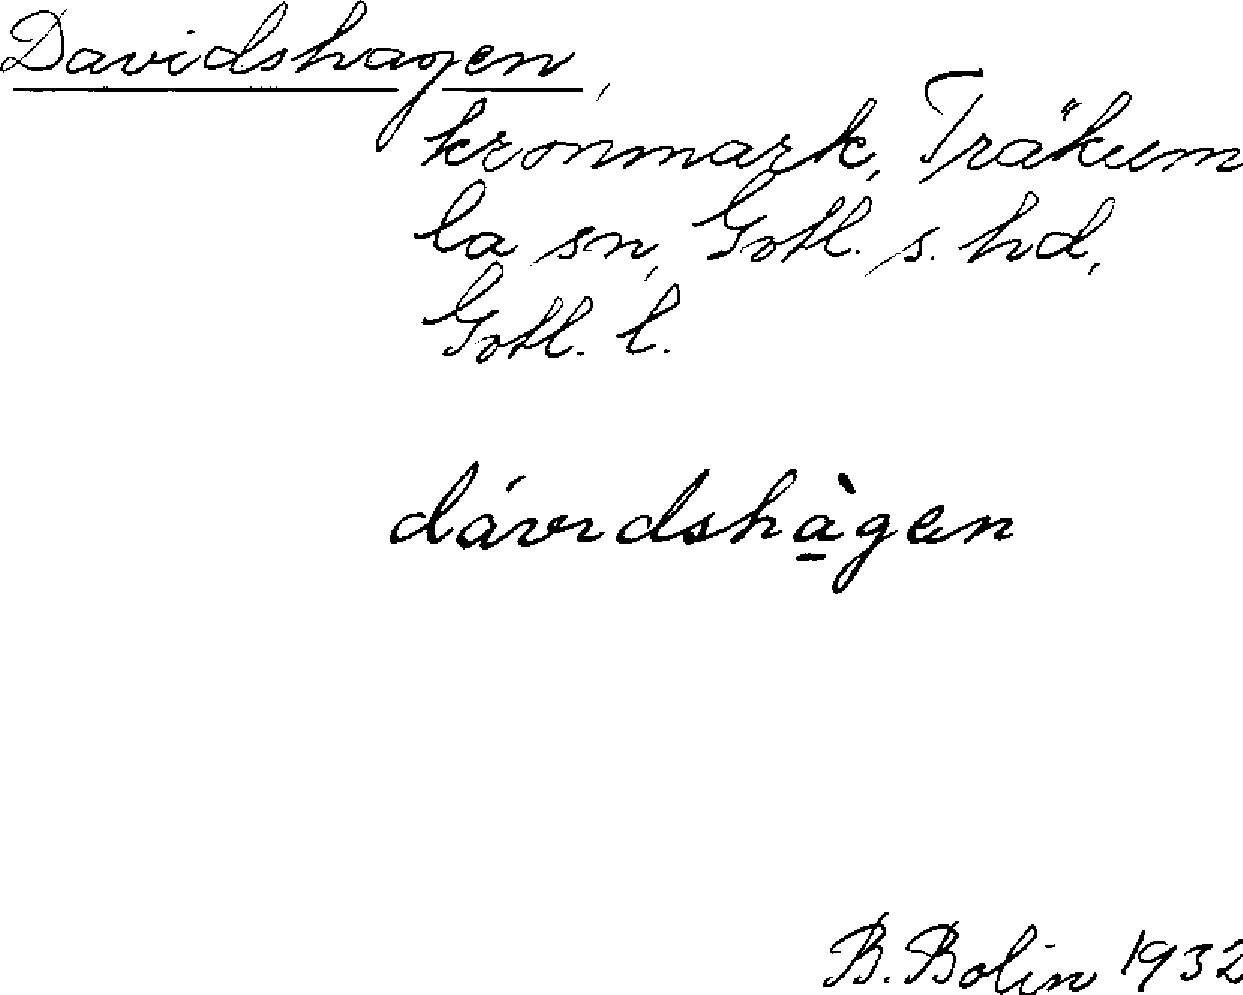 Davidshagen,
kronmark, Träkum
la sn, Gotl. s. hd,
Gotl. l.
dávıdshà̱gen
B. Bolin 1932